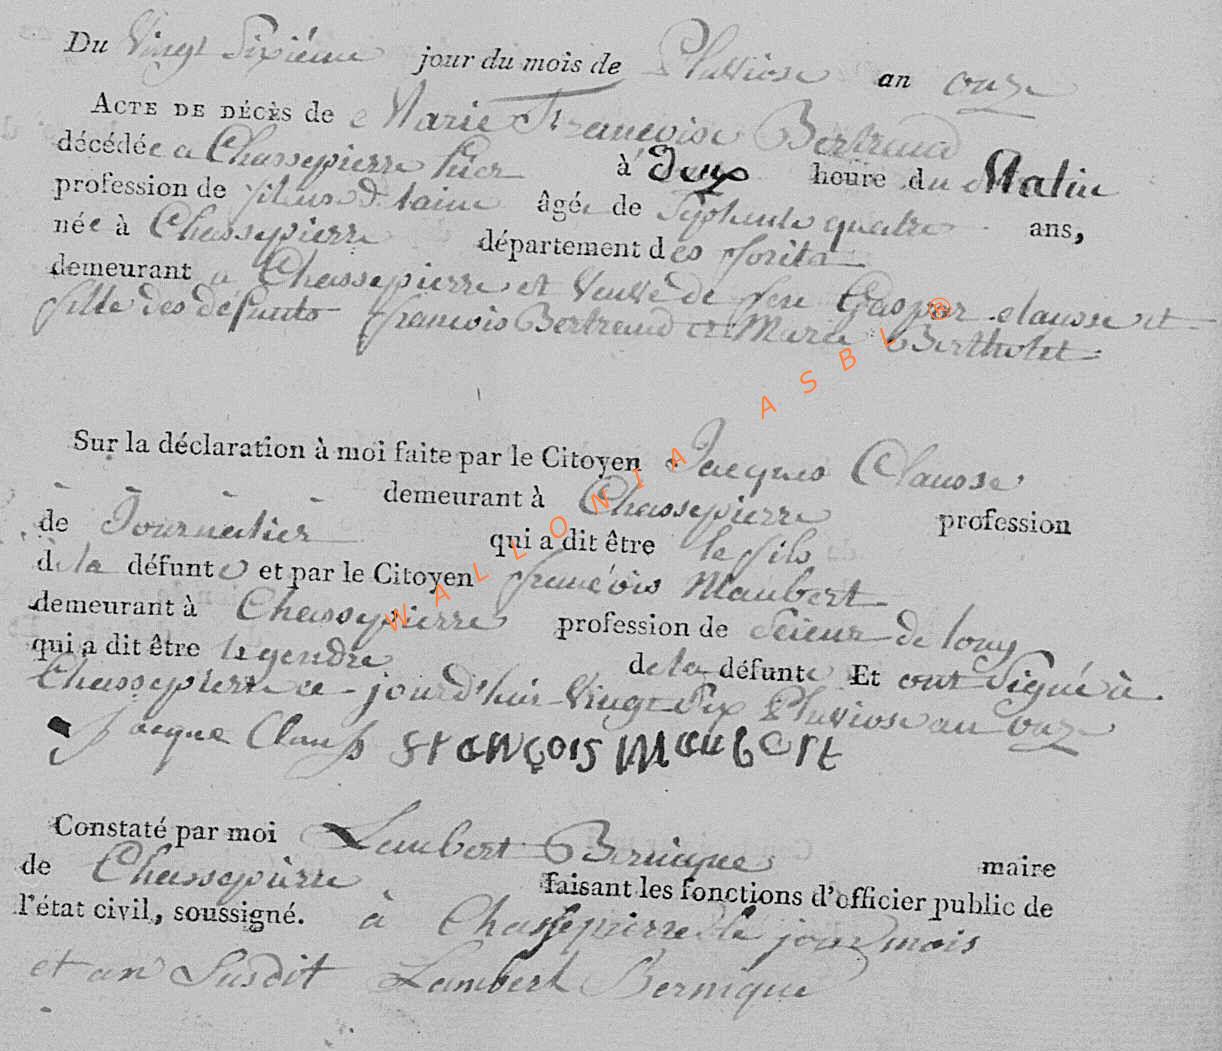 Du Vingt Sixiéme jour du mois de Pluviose an onze
ACTE DE DÉCÈS de Marie Francoise Bertrand
décédée a Chassepierre hier à deux heure du Matin
profession de fileuse d laine âgée de Septente quatre ans,
née à Chassepierre département des forets
demeurant a Chassepierre et Veuve de feu Gaspar Clausse et
fille des defunts francois Bertrand et Marie Bertholet
Sur la déclaration à moi faite par le Citoyen Jacques Clausse
demeurant à Chassepierre profession
de Journalier qui a dit être le fils
de la défunte et par le Citoyen francois Maubert
demeurant à Chassepierre profession de Scieur de long
qui a dit être le gendre de la défunte Et ont Signé à
Chassepierre ce jourd'huir Vingt Six Pluviose an onze
Jacque Clauss FrANÇOIS MAUBErt
Constaté par moi Lambert Bernique maire
de Chassepierre faisant les fonctions d'officier public de
l'état civil, soussigné. à Chassepierre le jour mois
et an Susdit Lambert Bernique
WALLONIA ASBL ®